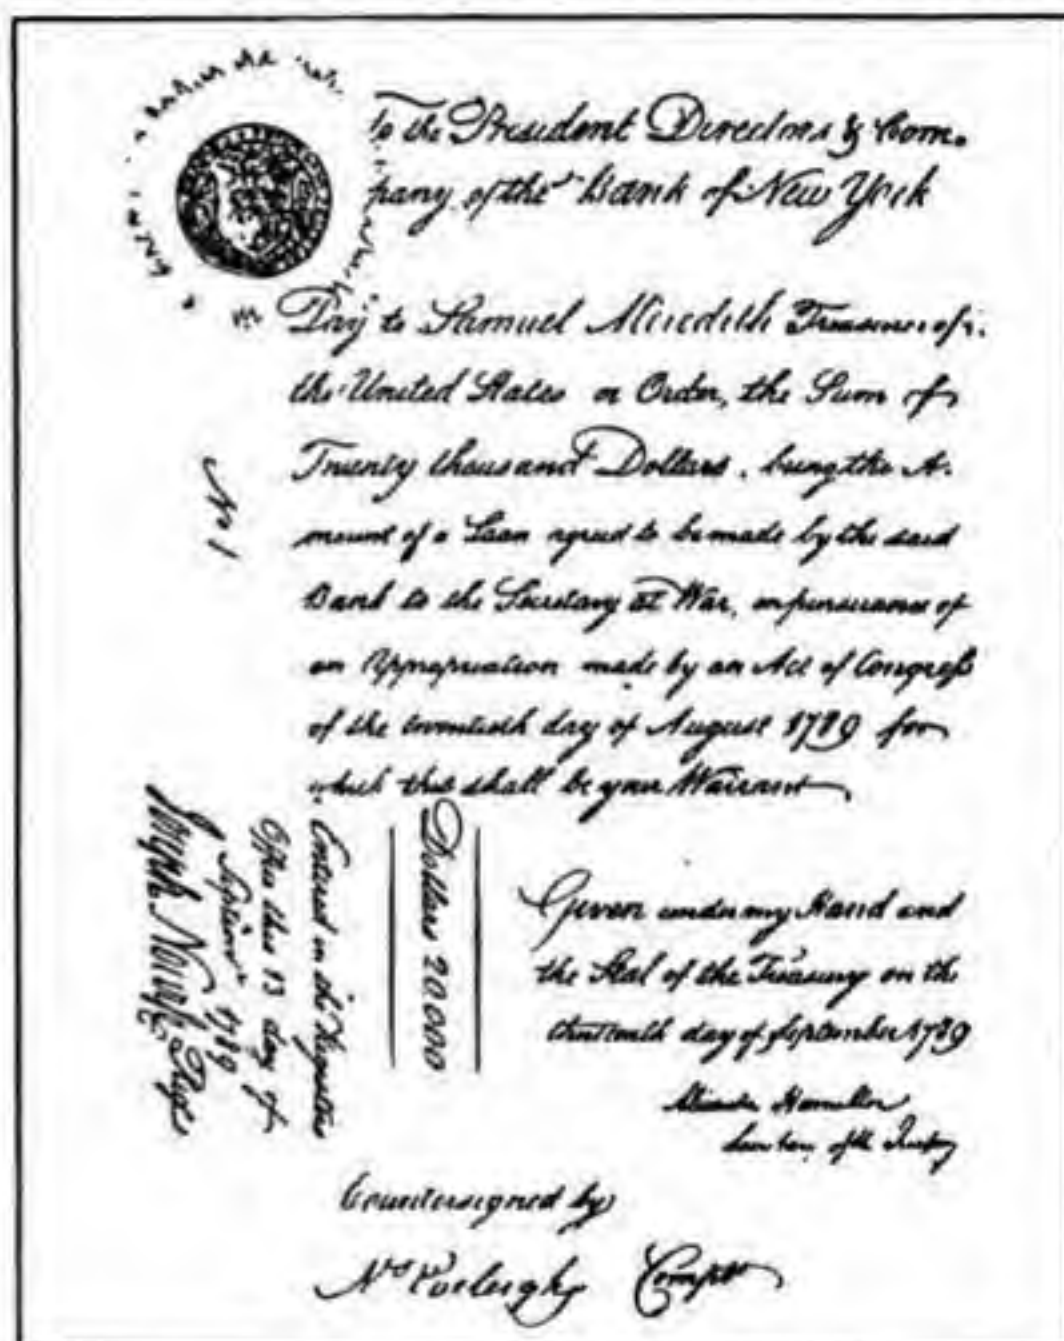 To the President Directors & Com-
pany of the Bank of New York
Pay to Samuel Meredith Treasurer of
the United States or Order, the Sum of
Twenty thousand Dollars, being the A-
mount of a Loan agreed to be made by the said
Bank to the Secretary at War, in pursuance of
an Appropriation made by an Act of Congress
of the twentieth day of August 1789 for
which this shall be your Warrant
No 1
Given under my Hand and
the Seal of the Treasury on the
thirteenth day of September 1789
Alexander Hamilton
Secretary of the Treasury
Dollars 20.000
Entered in the Registers
Office this 13 day of
September 1789
Joseph Nourse Regr
Countersigned by
Ns Eveleigh Compt